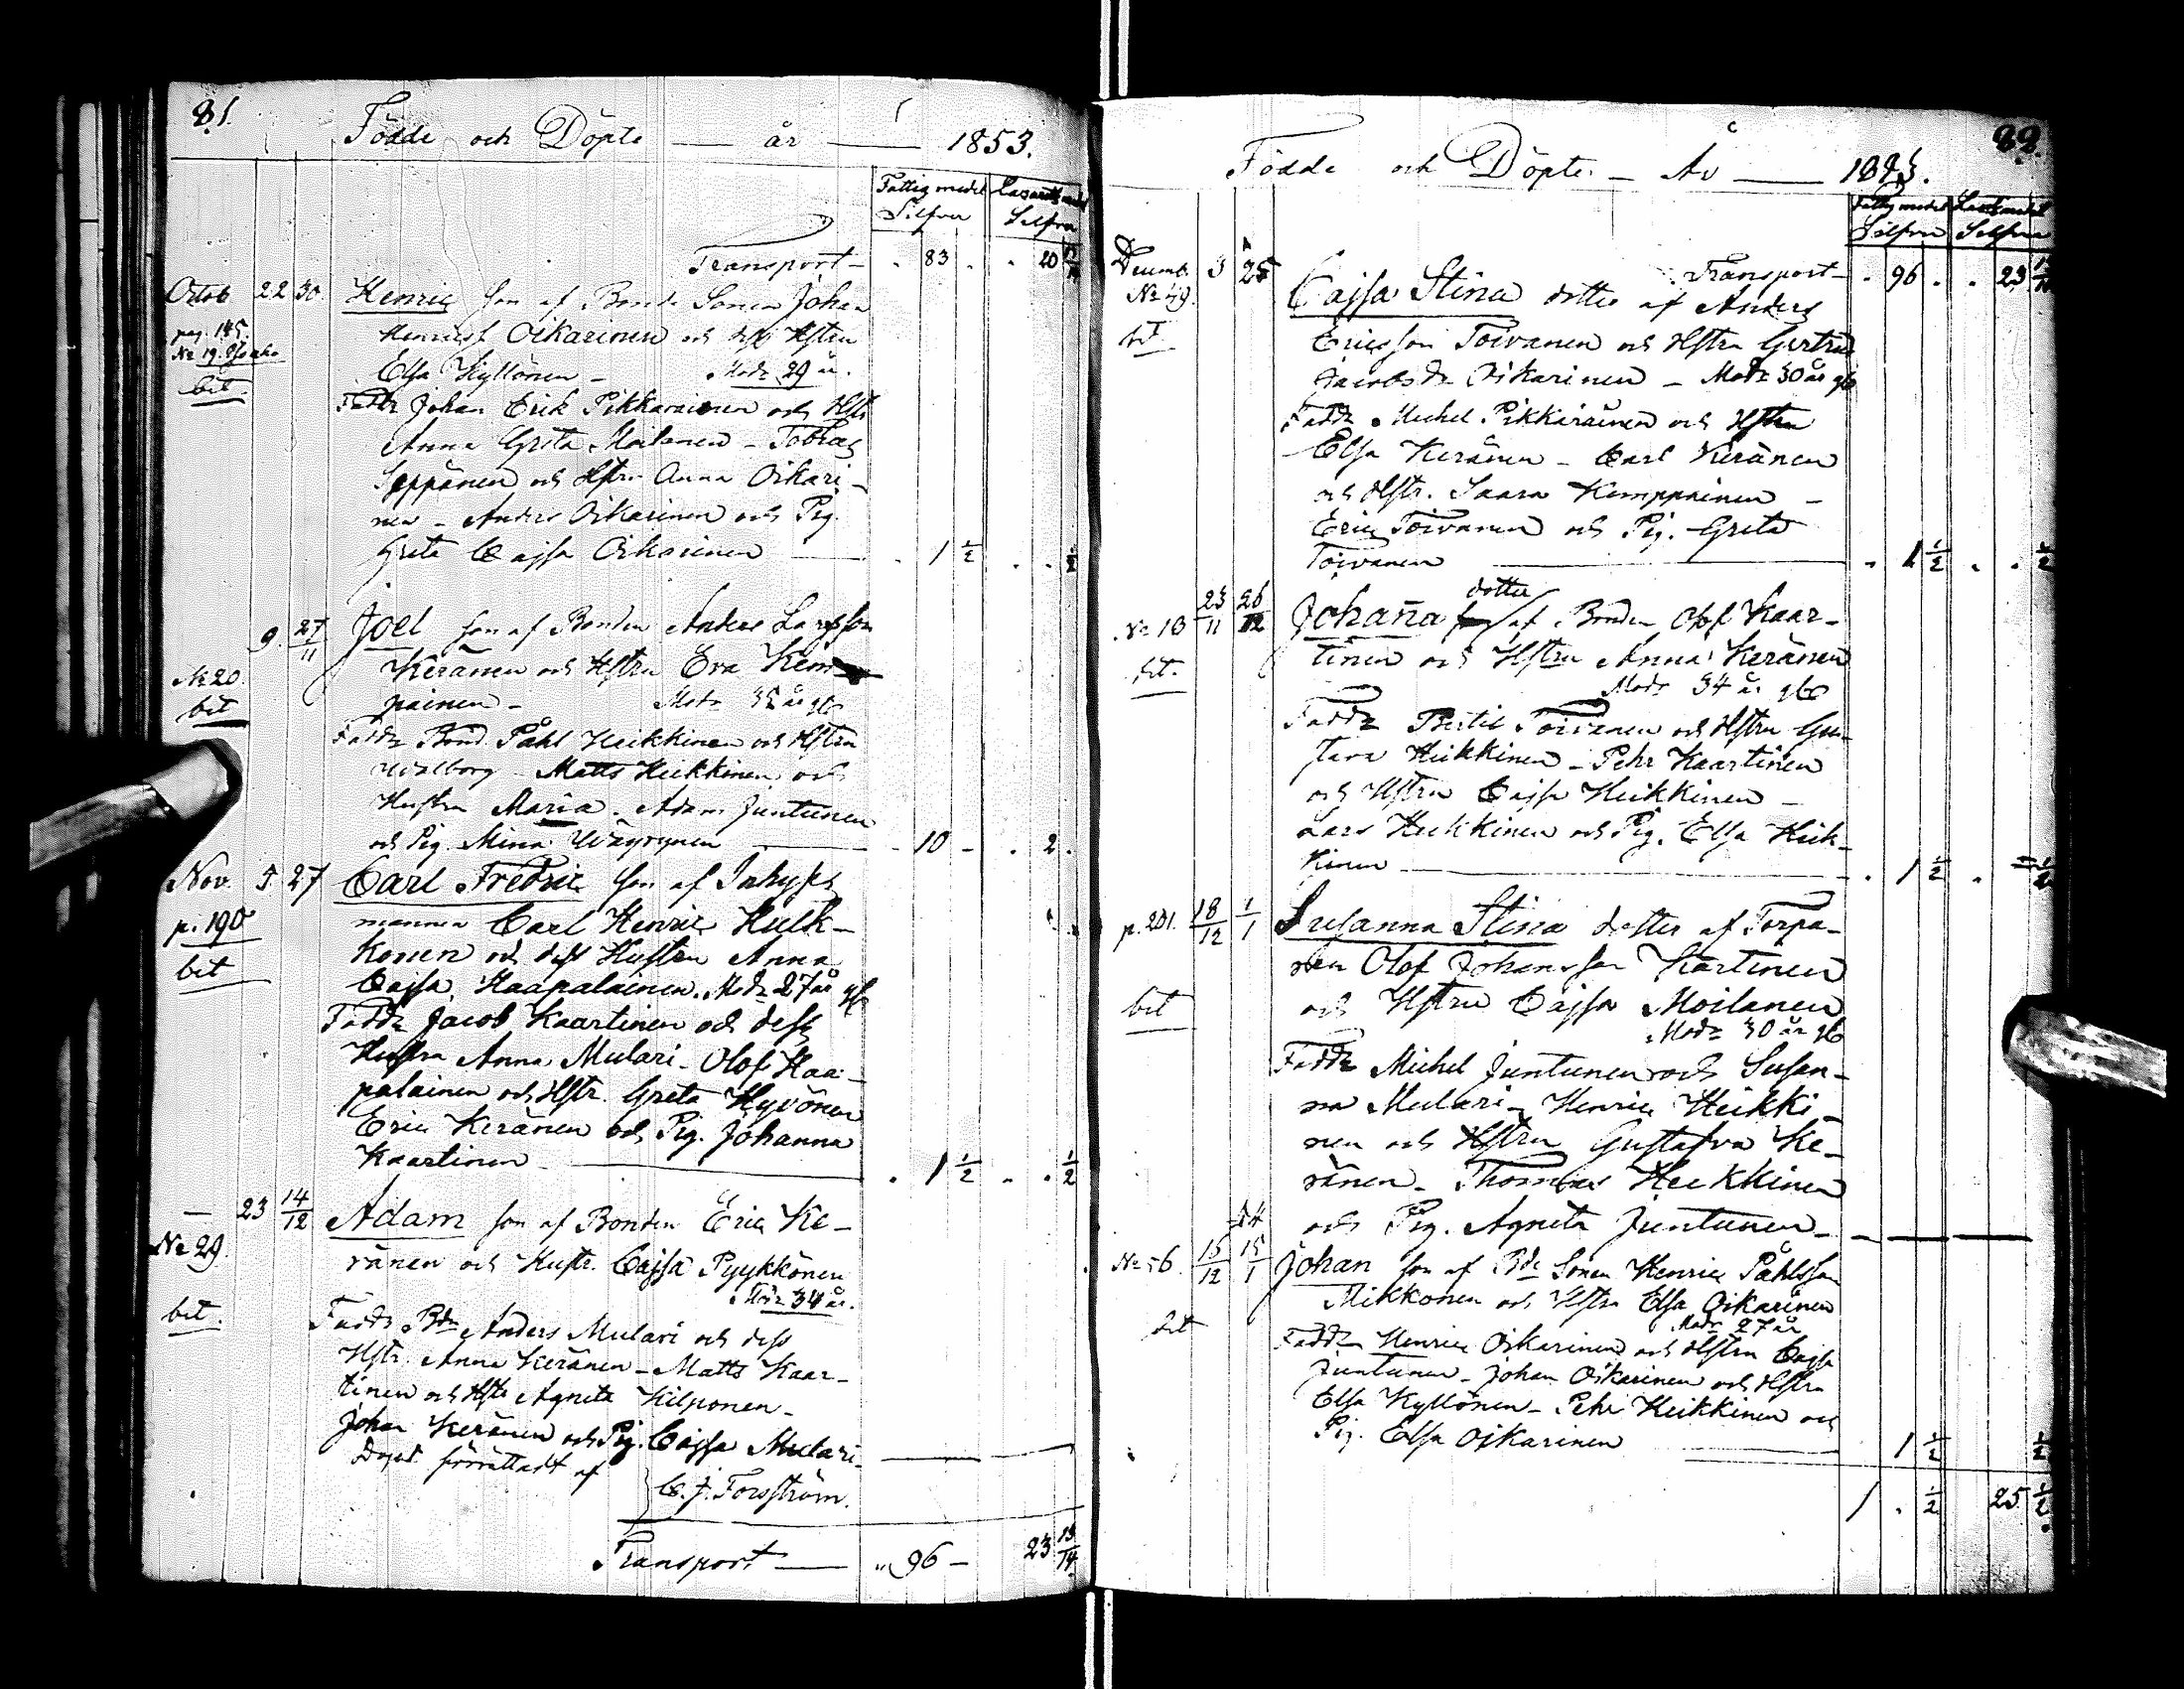 81.
Födde och Döpte — år — 1853.
Fattig medel Lazaretts medel
Silfver Silfver
Transport — 83 . 20
Octob 22 30. Henric son af Bonde Sonen Johan
Henricsf Oikarinen och dess Hstru
pag. 145.
No 19.
Elsa Kyllönen — Modr 29 år.
bet.
Faddr Johan Erik Pikkarainen och Hstr
Anna Greta Moilanen — Tobias
Seppänen och Hstru Anna Oikari-
nen — Anders Oikarinen och Pig.
Greta Cajsa Oikarinen — 1 1/2 . 1/2
9. 27/11 Joel son af Bonden Anders Larsson
Keränen och Hstru Eva Kem
No 20.
painen — Modr 35 år
bet
Faddr Bond. Påhl Heikkinen och Hstru
Walborg — Matts Heikkinen och
Hustru Maria. Adam Juntunen
och Pig. Mina Wäyrynen — 10 — . 2.
Nov. 5 27 Carl Fredric son af Inhyses
p. 190
mannen Carl Henric Hulk-
konen och dess Hustru Anna
bet
Cajsa Haapalainen. Modr 27 år
Faddr Jacob Kaartinen och dess
Hustru Anna Mulari — Olof Haa-
palainen och Hstr. Greta Hyvönen
Eric Keränen och Pig. Johanna
Kaartinen — 1 1/2 . . 1/2
— 23 14/12 Adam son af Bonden Eric Ke-
No 29.
ränen och Hustr. Cajsa Pyykkönen
Modr 34 år.
bet.
Faddr Bdn Anders Mulari och dess
Hstr. Anna Keränen — Matts Kaar-
tinen och Hstr Agneta Kilponen —
Johan Keränen och Pig. Cajsa Mulari —
Dopet förrättadt af
C. J. Forsström.
Transport — 96 — 23 13/14
82.
Födde och Döpte — År —
Fattig medel
Silfver Silfver
Transport — 96 . . 23
Decemb. 3 25 Cajsa Stina dotter af Anders
bet.
Ericsson Toivanen och Hstru Gertrud
Jacobsdr Oikarinen — Modr 30 år
Faddr Michel Pikkarainen och Hstru
Elsa Keränen — Carl Keränen
och Hstr. Saara Kemppainen —
Eric Toivanen och Pig. Greta
Toivanen — 1 1/2 . . 1/2
No 10 23/11 26/12 Johanna dotter af Bonden Olof Kaar-
tinen och Hstru Anna Keränen
bet.
Modr 34 år
Faddr Bertil Toivanen och Hstru Gus-
tava Heikkinen — Pehr Kaartinen
och Hstru Cajsa Heikkinen —
Lars Heikkinen och Pig. Elsa Heik-
kinen — 1 1/2 . 1/2
p. 201. 18/12 1/1 Susanna Stina dotter af Torpa-
ren Olof Johansson Kärtinen
bet
och Hstru Cajsa Moilanen
Modr 30 år
Faddr Michel Juntunen och Susan-
na Mulari — Henric Heikki-
nen och Hstru Gustafva Ke-
ränen — Thomas Heikkinen
och Pig. Agneta Juntunen —
No 56. 15/12 15/1 Johan son af Bde Sonen Henric Påhlsson
Mikkonen och Hstru Elsa Oikarinen
bet
Modr 27 år
Faddr Henric Oikarinen och Hstru Cajsa
Juntunen — Johan Oikarinen och Hstru
Elsa Kyllönen — Pehr Heikkinen och
Pig. Elsa Oikarinen — 1 1/2 1/2
1 . 1/2 25 1/2